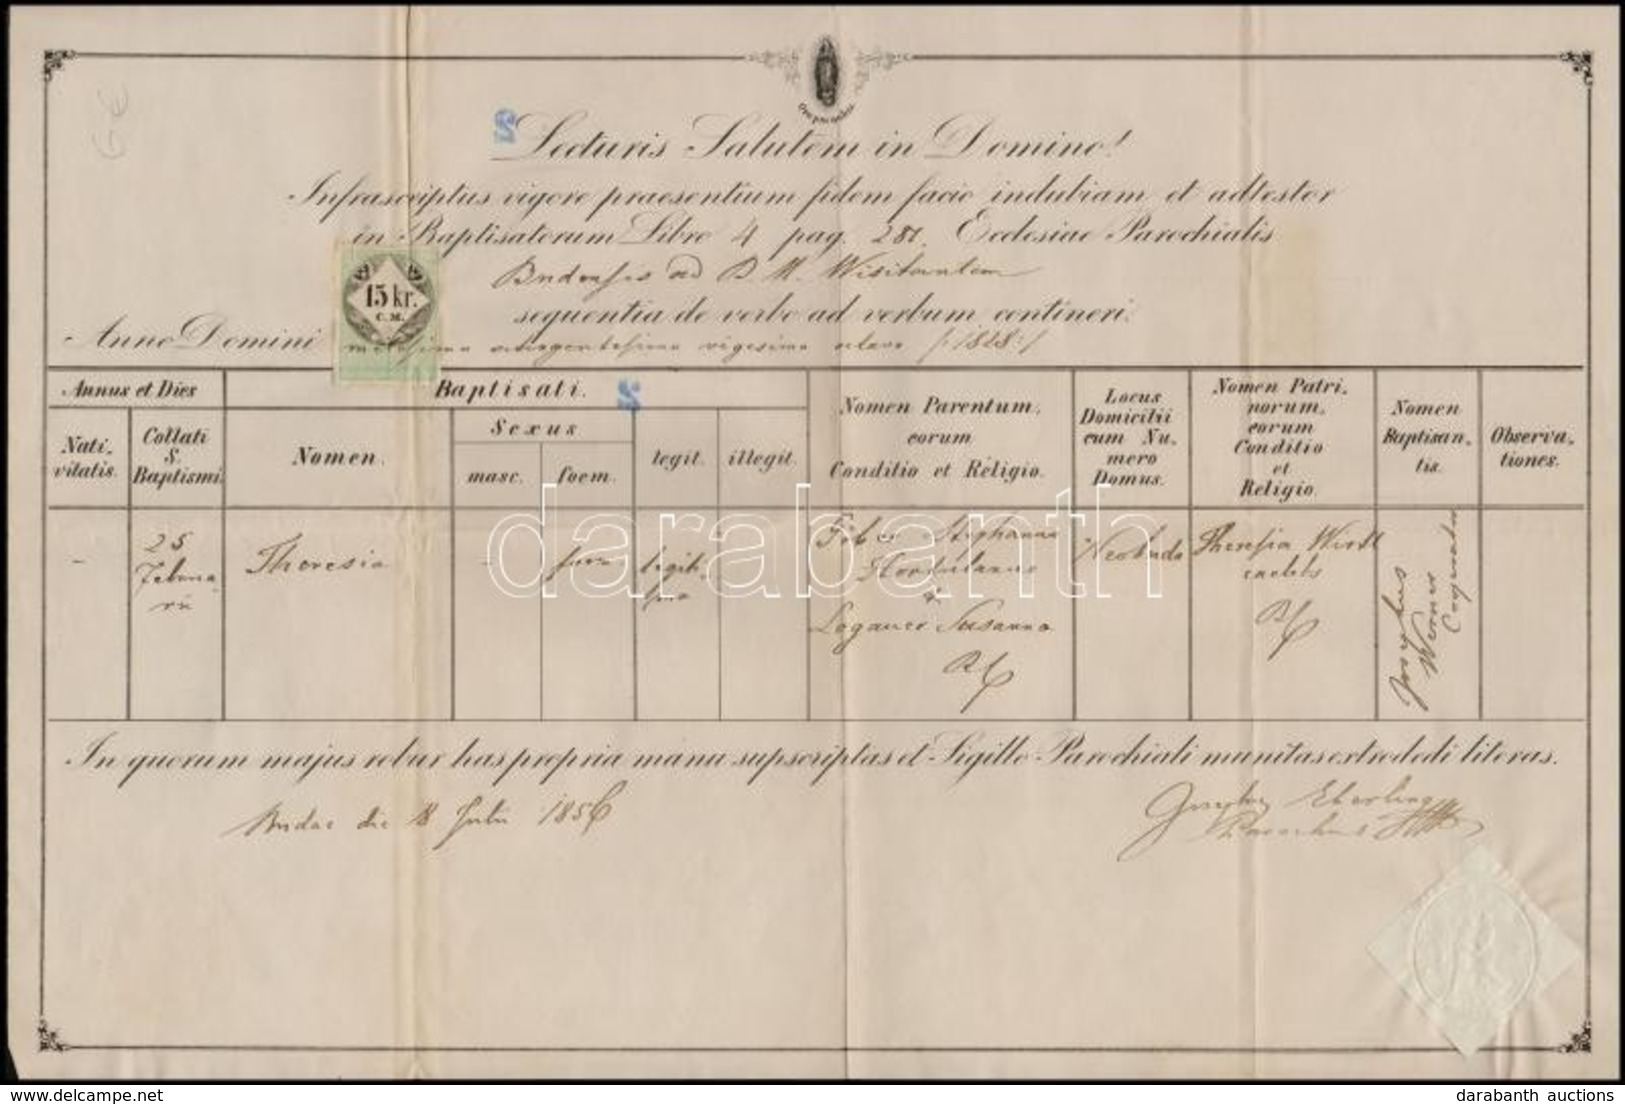 Lecturis Salutem in Domino!
Infrascriptus vigore praesentium fidem facio indubiam et adtestor
in Baptisatorum Libro 4 pag. 281. Ecclesiae Parochialis
Budensis ad B. M. Visitantem
sequentia de verbo ad verbum contineri.
15 kr.
C. M.
Anno Domini millesimo octingentesimo vigesimo octavo /:1828:/
Annus et Dies
Baptisati.
2
Nomen Parentum, eorum Conditio et Religio.
Locus Domicilii cum Numero Domus.
Nomen Patrinorum, eorum Conditio et Religio.
Nomen Baptisantis.
Observationes.
Nativitatis.
Collati S. Baptismi.
Nomen.
Sexus
masc.
foem.
legit.
illegit.
-
25
Februarii
Theresia
-
Stephanus
&
Susanna
Theresia
Josephus
Werner
Cooperator
In quorum majus robur has propria manu supscriptas et Sigillo Parochiali munitas extradedi literas.
Budae die 18 Julii 1856
Eberling
Parochus
darabanth
darabanth auctions